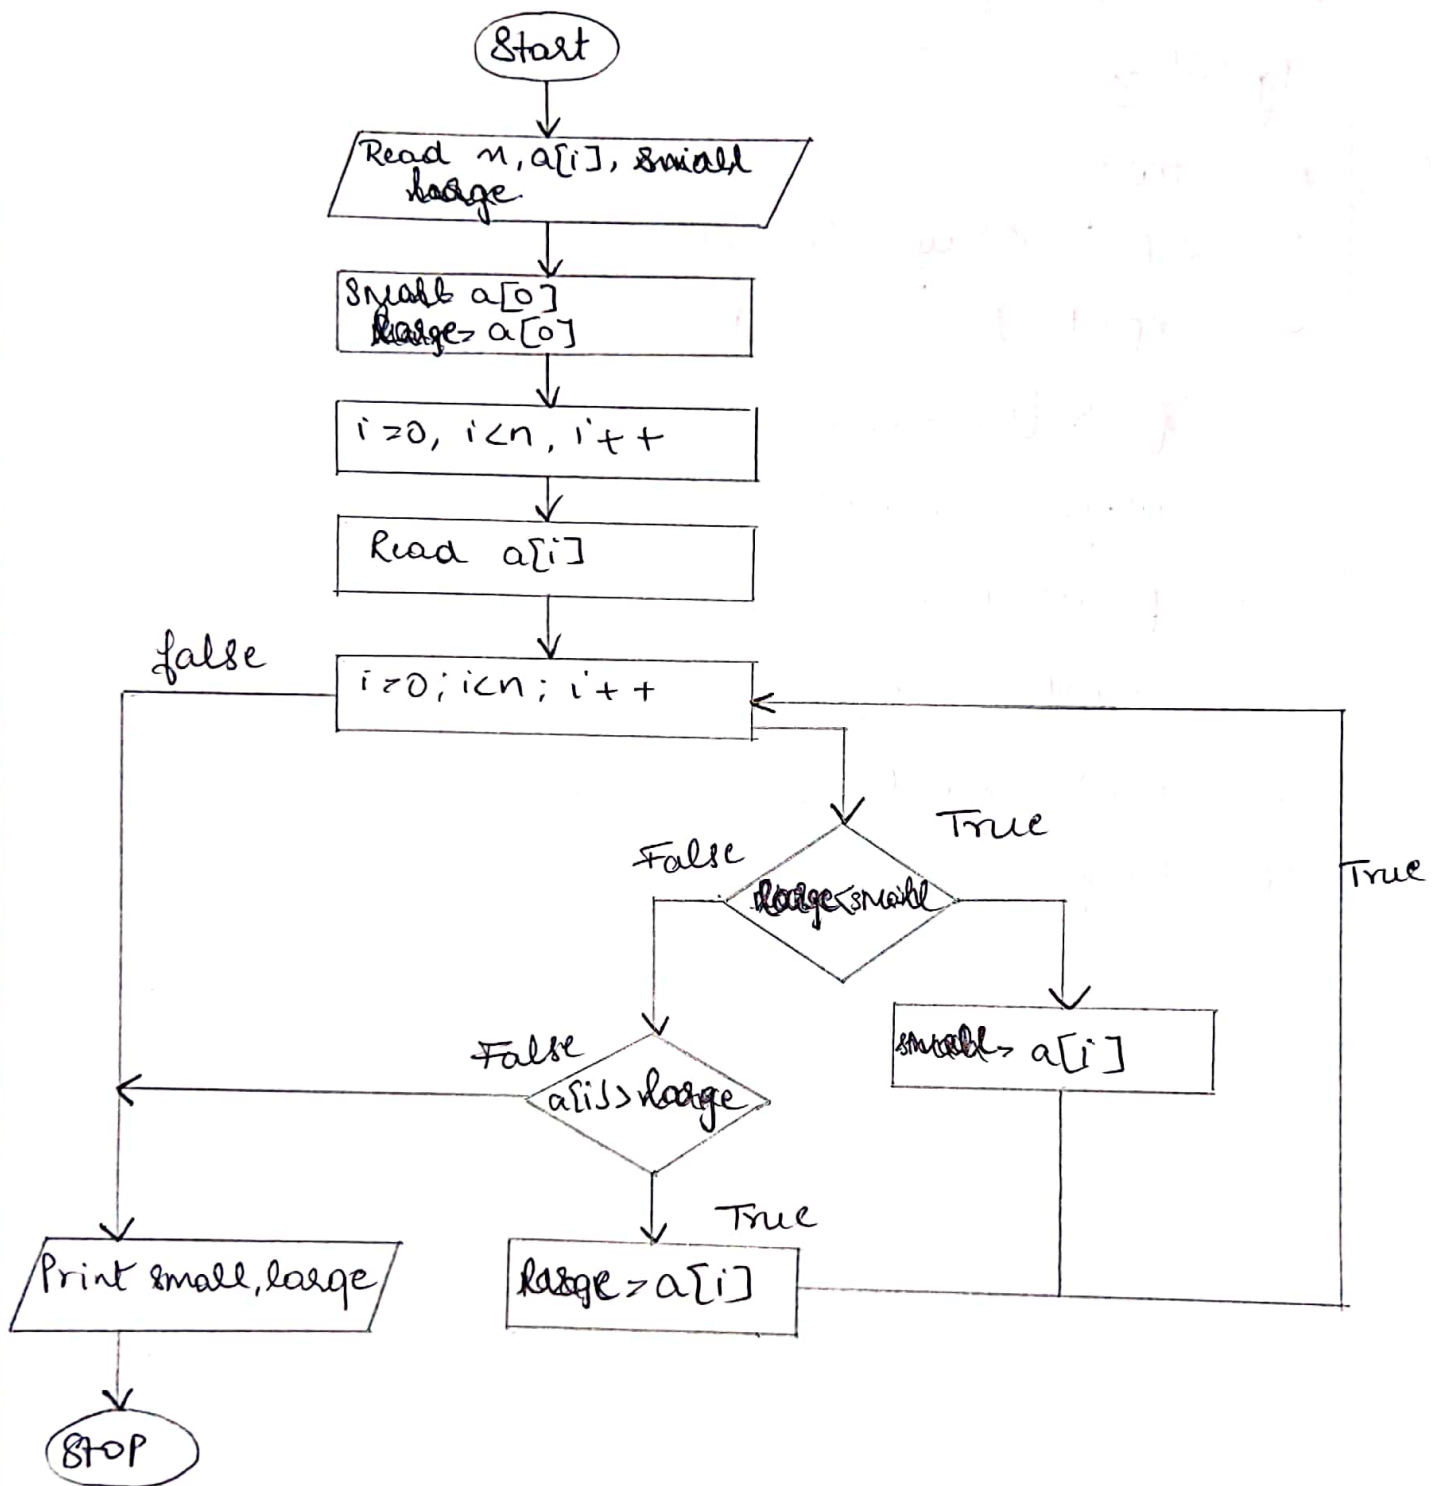 Start
Read n, a[i], small
large
small a[0]
large= a[0]
i=0, i<n, i++
Read a[i]
false
i=0; i<n; i++
True
False
True
large<small
small= a[i]
False
a[i]>large
True
Print small, large
large=a[i]
STOP